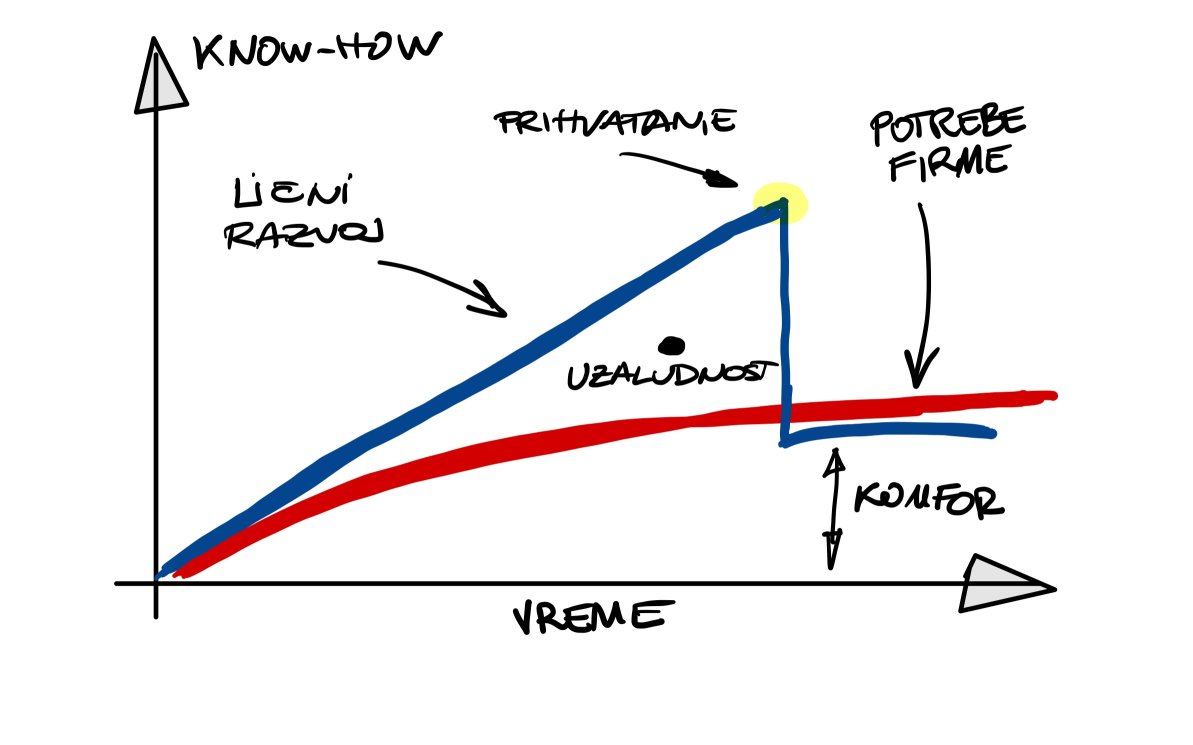 KNOW-HOW
PRIHVATANJE
POTREBE
FIRME
LIČNI
RAZVOJ
UZALUDNOST
KOMFOR
VREME